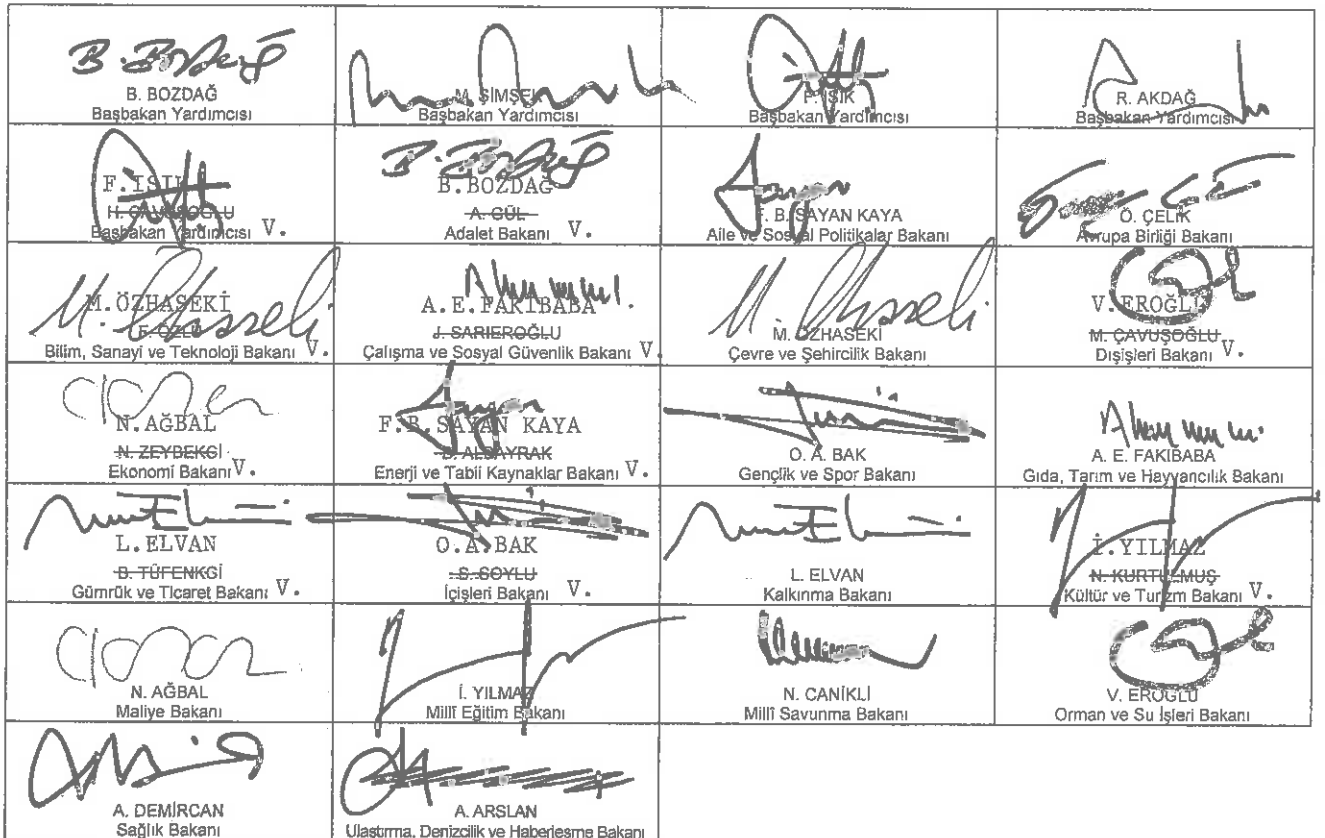 B. BOZDAĞ
Başbakan Yardımcısı
M. ŞİMŞEK
Başbakan Yardımcısı
F. IŞIK
Başbakan Yardımcısı
R. AKDAĞ
Başbakan Yardımcısı
F. IŞIK
H. ÇAVUŞOĞLU
Başbakan Yardımcısı V.
B.BOZDAĞ
A. GÜL
Adalet Bakanı V.
F. B. SAYAN KAYA
Aile ve Sosyal Politikalar Bakanı
Ö. ÇELİK
Avrupa Birliği Bakanı
M. ÖZHASEKİ
F. ÖZLÜ
Bilim, Sanayi ve Teknoloji Bakanı V.
A.E.FAKIBABA
J. SARIEROĞLU
Çalışma ve Sosyal Güvenlik Bakanı V.
M. ÖZHASEKİ
Çevre ve Şehircilik Bakanı
V. EROĞLU
M. ÇAVUŞOĞLU
Dışişleri Bakanı V.
N.AĞBAL
N. ZEYBEKGİ
Ekonomi Bakanı V.
F.B.SAYAN KAYA
B. ALBAYRAK
Enerji ve Tabii Kaynaklar Bakanı V.
O. A. BAK
Gençlik ve Spor Bakanı
A. E. FAKIBABA
Gıda, Tarım ve Hayvancılık Bakanı
L.ELVAN
B. TÜFENKGİ
Gümrük ve Ticaret Bakanı V.
O.A.BAK
S. SOYLU
İçişleri Bakanı V.
L. ELVAN
Kalkınma Bakanı
İ.YILMAZ
N. KURTULMUŞ
Kültür ve Turizm Bakanı V.
N. AĞBAL
Maliye Bakanı
İ. YILMAZ
Millî Eğitim Bakanı
N. CANİKLİ
Millî Savunma Bakanı
V. EROĞLU
Orman ve Su İşleri Bakanı
A. DEMİRCAN
Sağlık Bakanı
A. ARSLAN
Ulaştırma, Denizcilik ve Haberleşme Bakanı